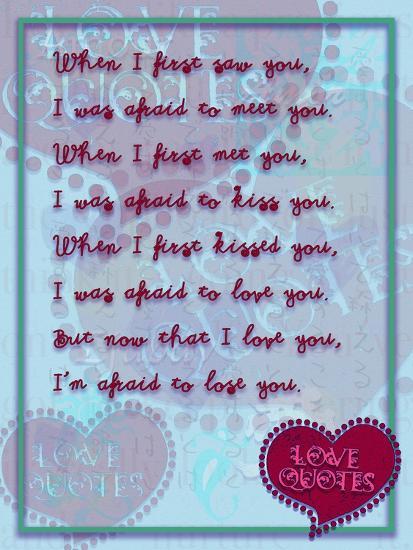 When I first saw you,
I was afraid to meet you.
When I first met you,
I was afraid to kiss you.
When I first kissed you,
I was afraid to love you.
But now that I love you,
I'm afraid to lose you.
LOVE
QUOTES
LOVE
QUOTES
LOVE
QUOTES